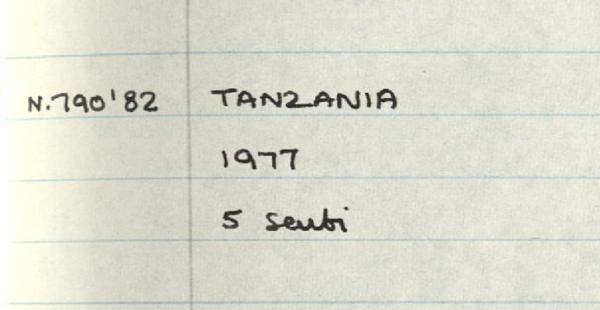 N.790'82 TANZANIA
1977
5 senti